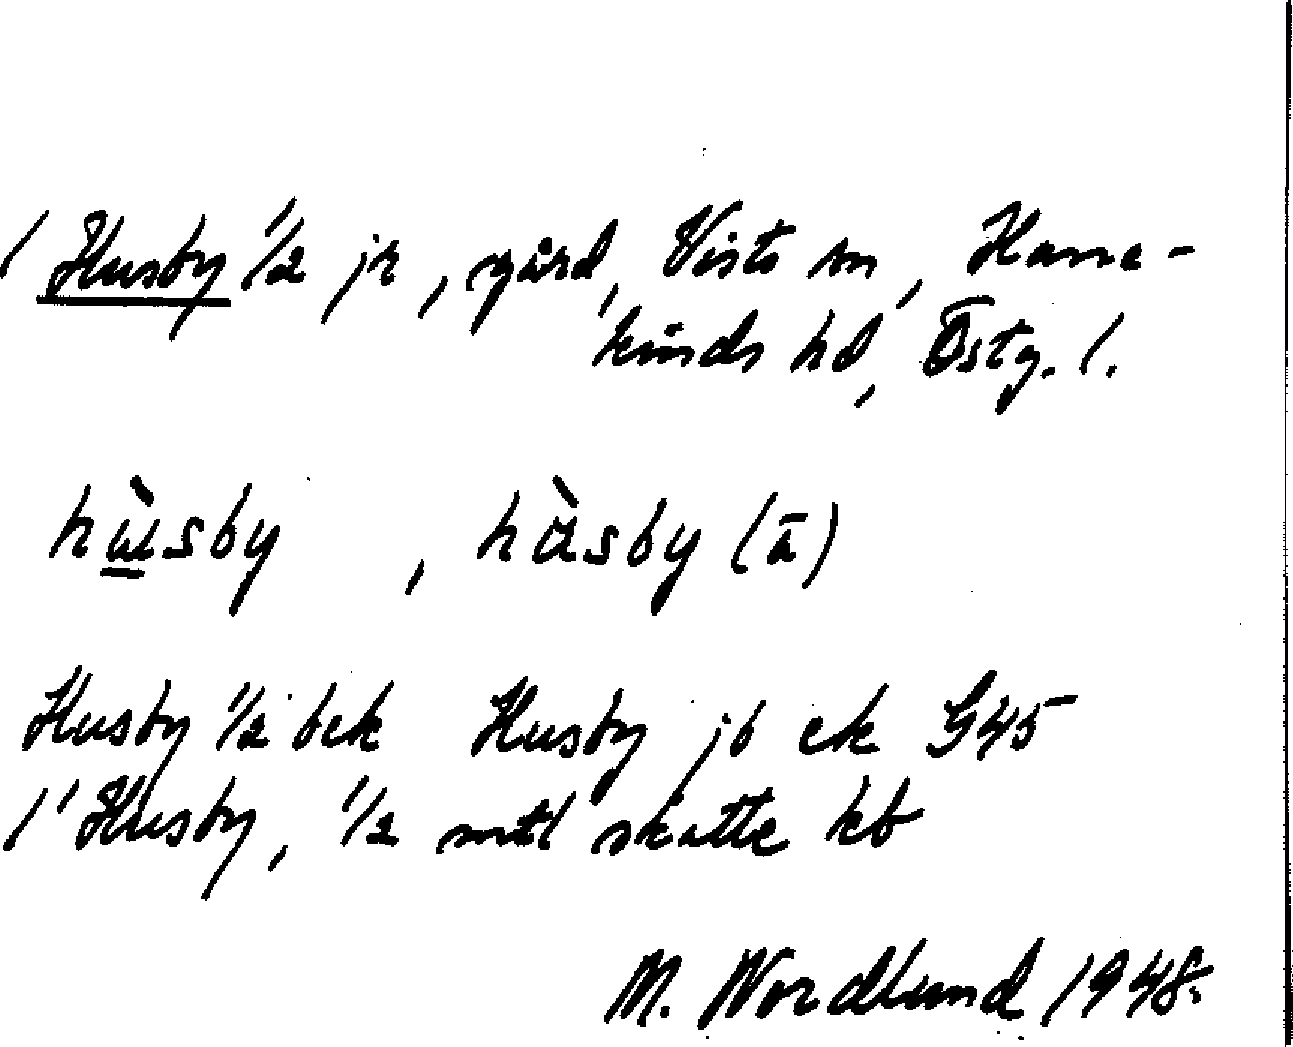 1 Husby 1/2 jr, gård, Vists sn, Hane-
kinds hd, Östg. l.
hù̲sby , hàsby (ā)
Husby 1/2 bek Husby jb ek G45
1' Husby, 1/2 mtl skatte kb
M. Nordlund 1948.